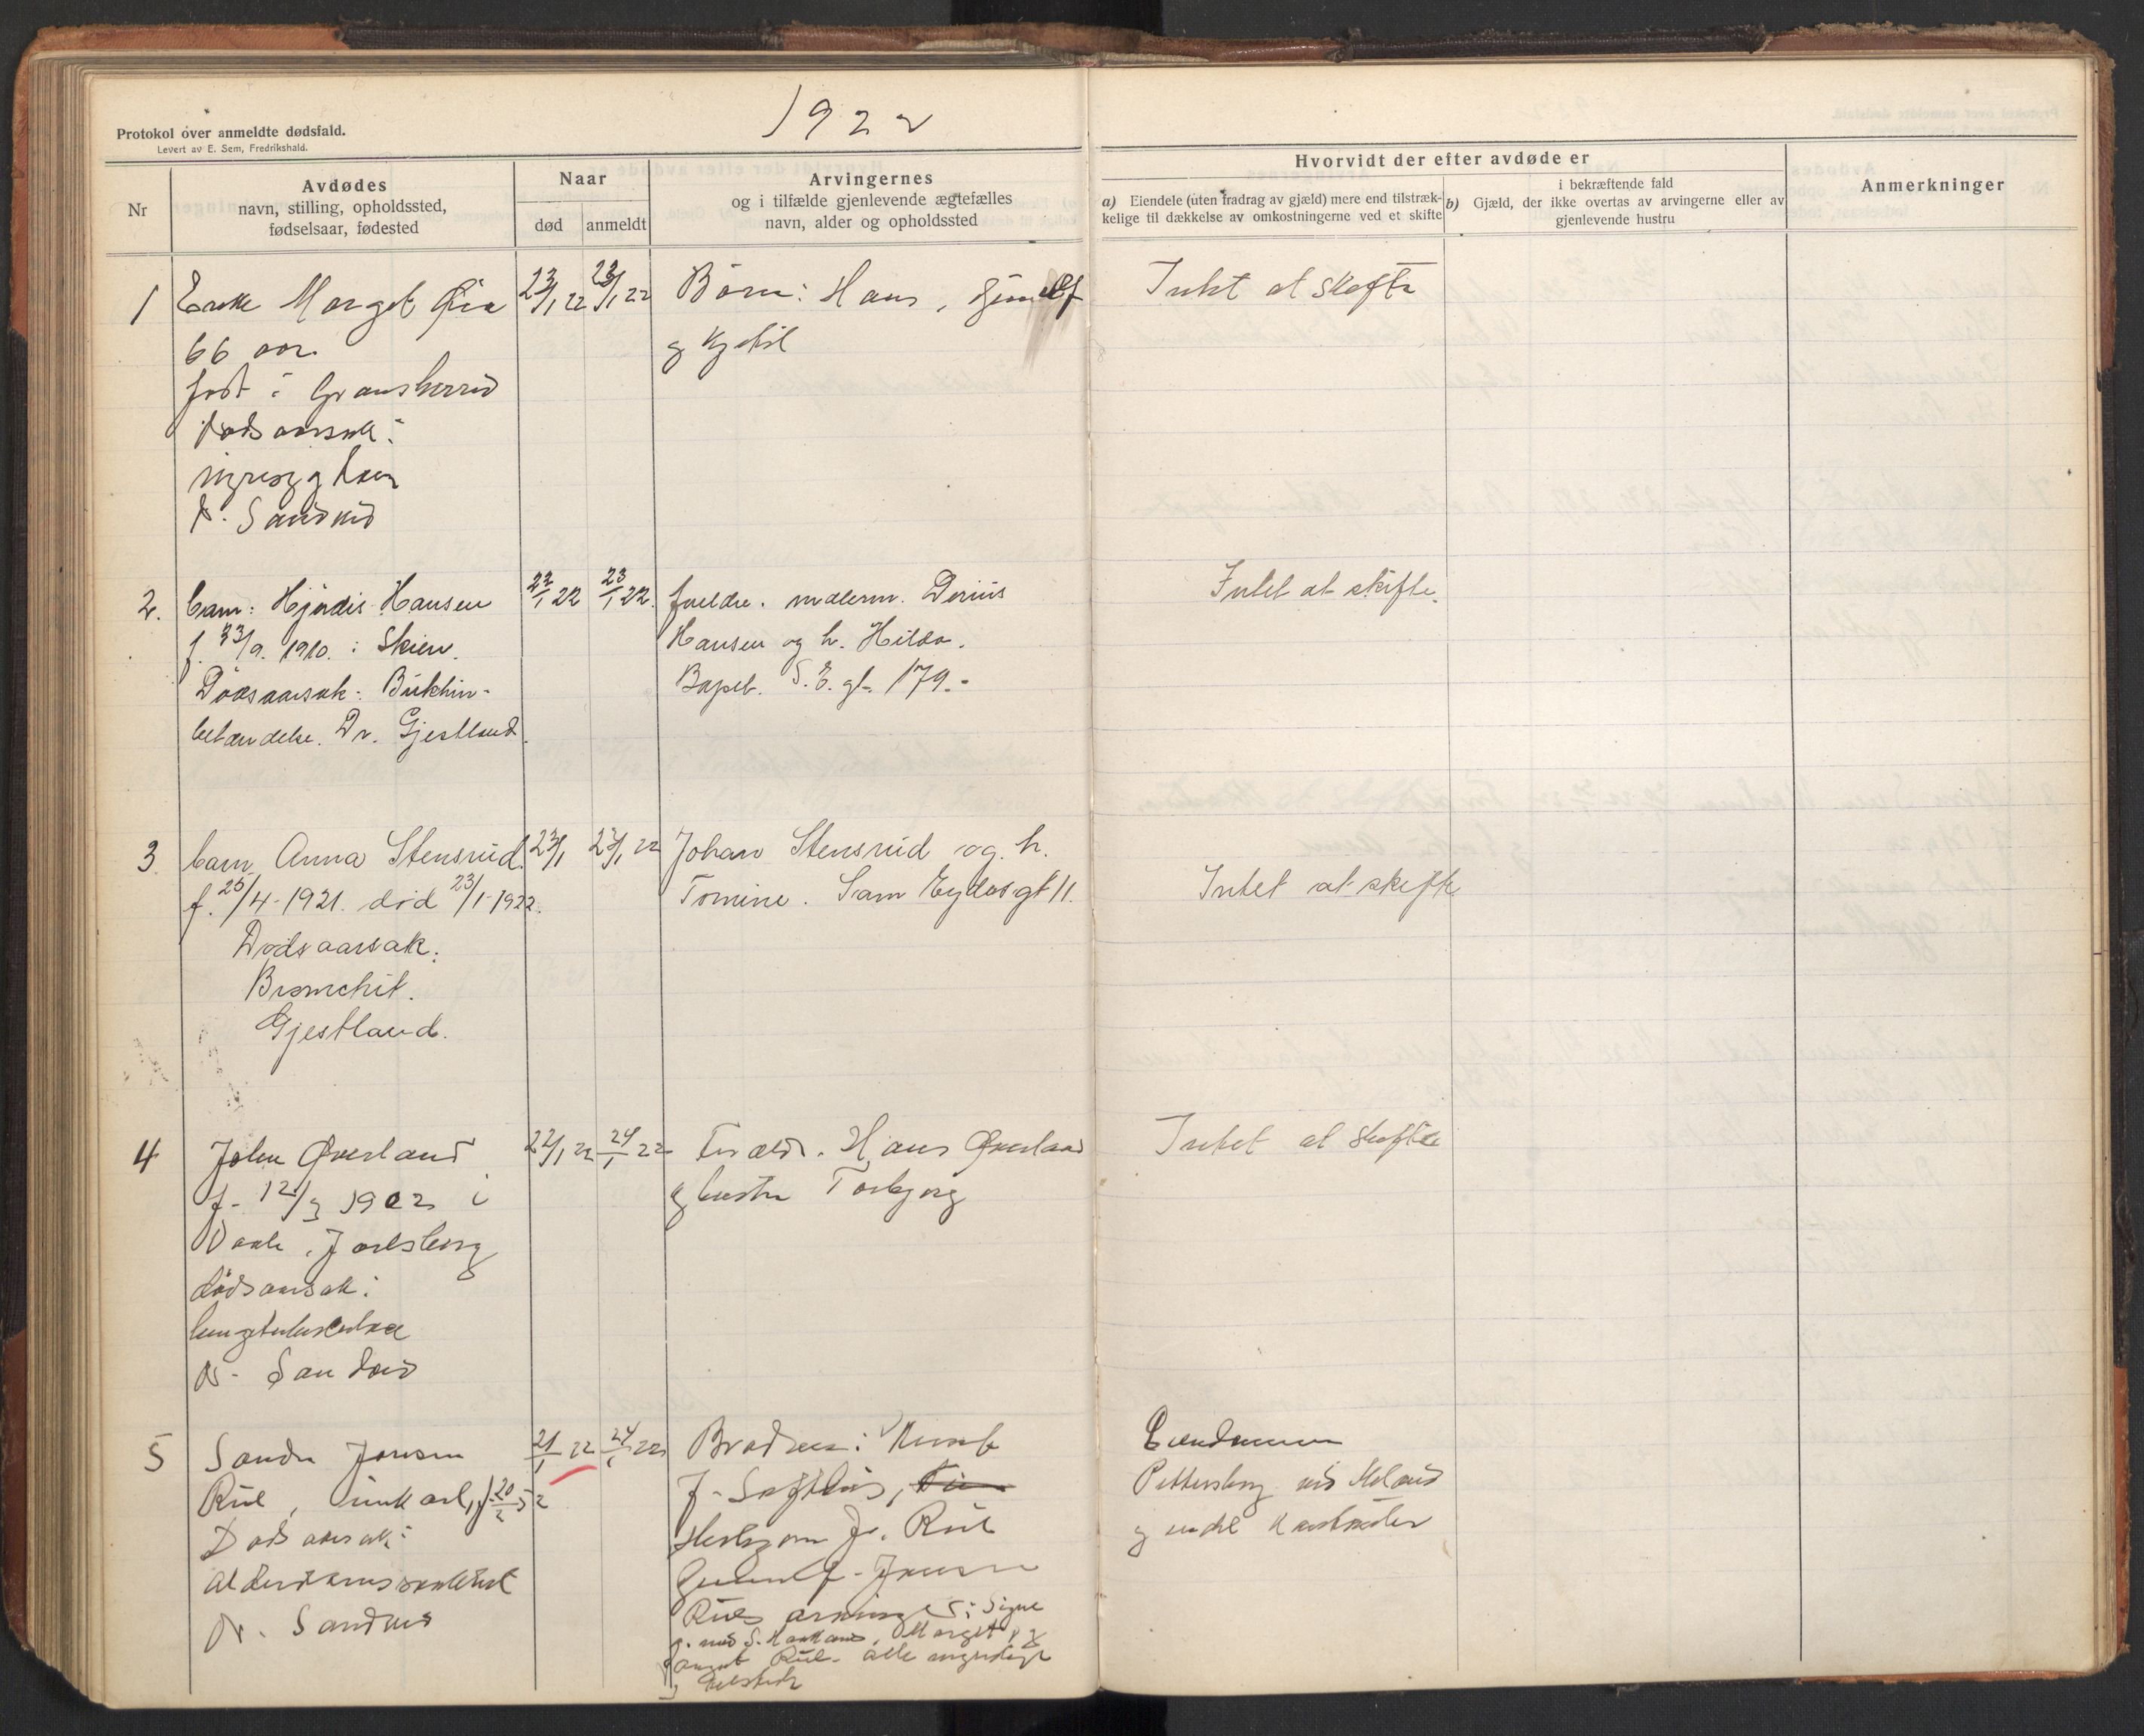 1922
Protokol over anmeldte dødsfald.
Levert av E. Sem, Fredrikshald.
Nr
Avdødes
navn, stilling, opholdssted,
fødselsaar, fødested
Naar
død
anmeldt
Arvingernes
og i tilfælde gjenlevende ægtefælles
navn, alder og opholdssted
Hvorvidt der efter avdøde er
a) Eiendele (uten fradrag av gjæld) mere end tilstræk-
kelige til dækkelse av omkostningerne ved et skifte
i bekræftende fald
b) Gjæld, der ikke overtas av arvingerne eller av
gjenlevende hustru
Anmerkninger
1
Enke Marget
66 aar.
født i Gransherred
Dødsaarsak:
D. Sandvid
23/1 22
23/1 22
Børn: Hans,
og Kjetil
Intet at skifte
2.
barn: Hjørdis Hansen
f. 23/9. 1910. i Skien.
Dødsaarsak: Bukhin-
betændelse. Dr. Gjestland.
22/1 22
23/1 22.
forældre. malerm. Denius
Hansen og h. Hilda.
S. E. gt. 179.-
Intet at skifte.
3.
barn Anna Stensrud.
f. 25/4-1921. død 23/1-1922.
Dødsaarsak:
Bronchit.
Gjestland.
23/1
23/1 22
Johan Stensrud og h.
Tomine. Sam Eydes gt 11.
Intet at skifte
4
John Øverland
f. 12/3 1902 i
Jarlsberg
dødsaarsak:
lungetuberkulose
Dr. Sandvid
22/1 22
24/1 22
Foræld. Hans Øverland
og hustru Torbjørg
Intet at skifte
5
Sondre Jonsen
Rue, unkarl, f 20/2 52
Dødsaarsak:
Dr. Sandvid
21/1 22
24/1 22
Brødrene:
Jr. Rue
Jonsen
Rues arvinger: Signe
Marget og
Rue. alle myndige
Eiendommen
Pettersborg ved
og endel kontanter